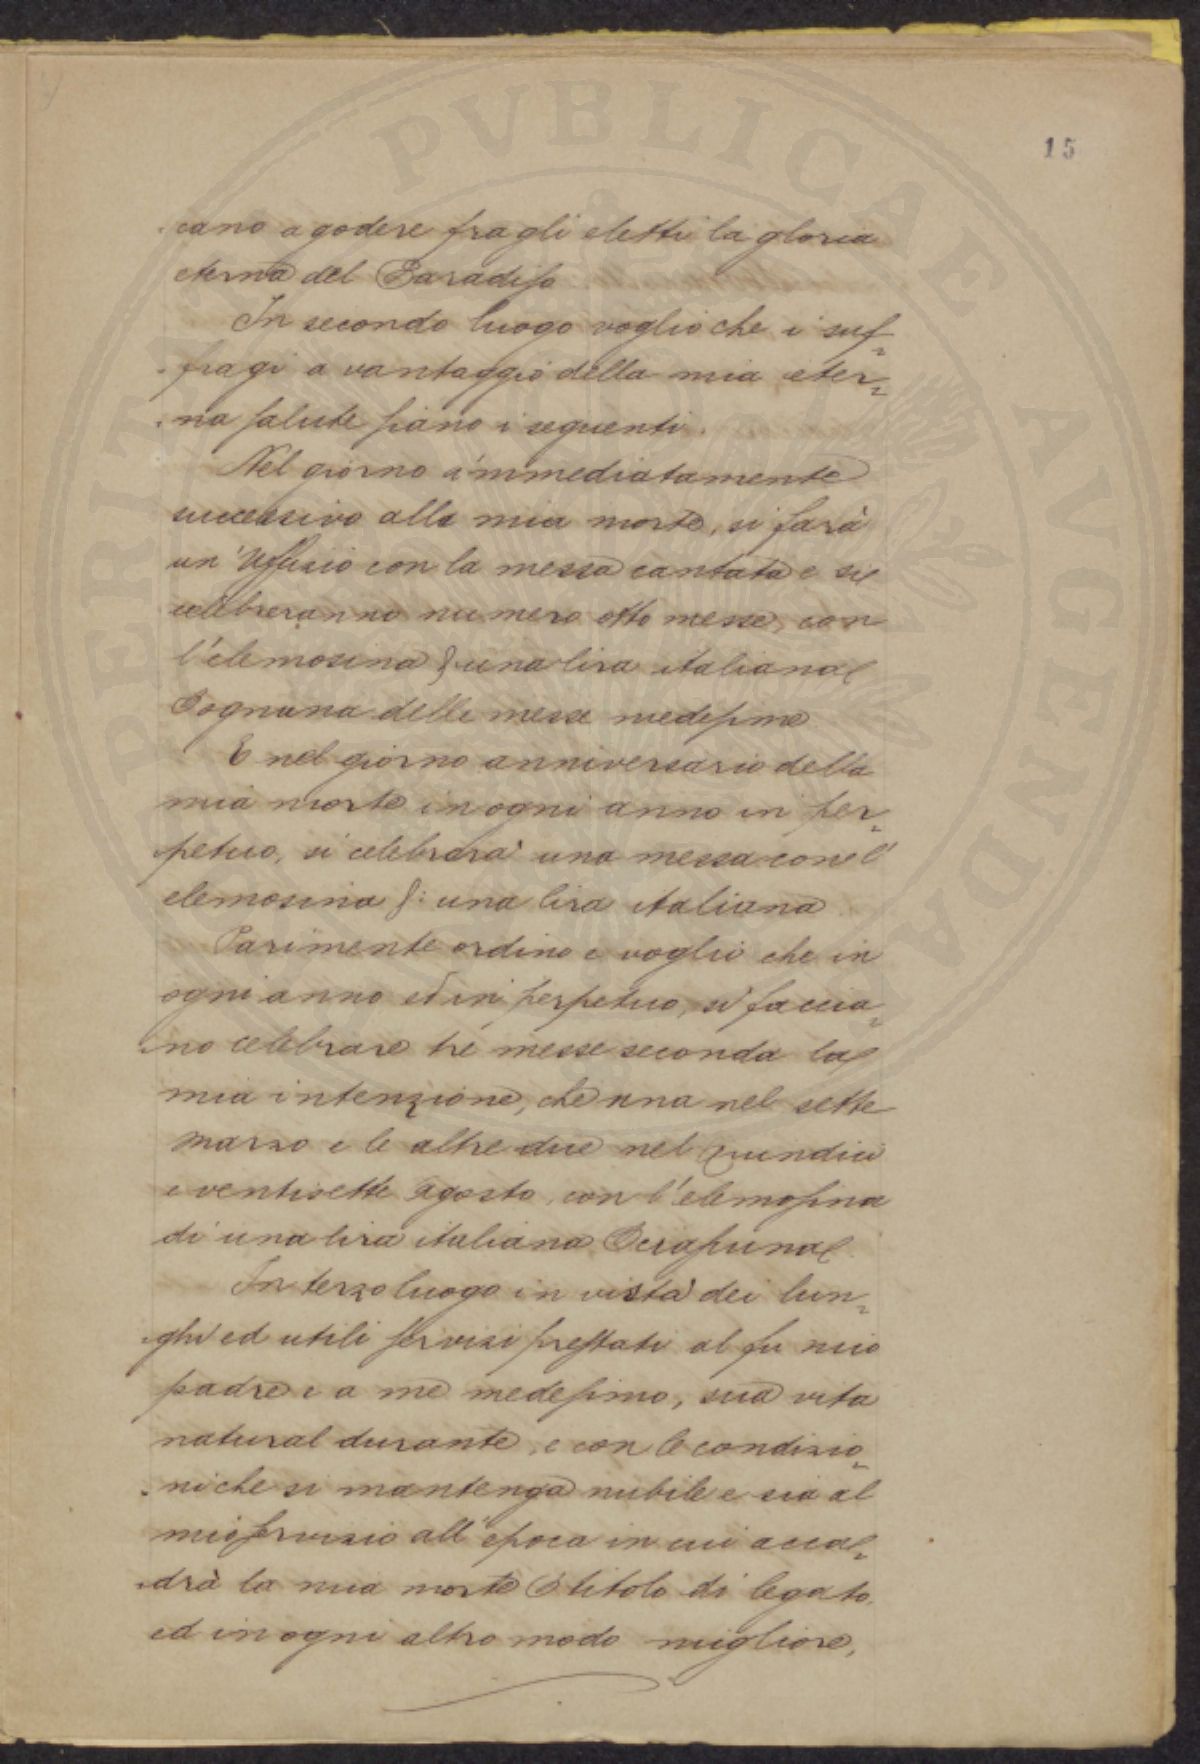 15
cano a godere fra gli eletti la gloria
eterna del Paradiso
In secondo luogo voglio che i suf=
fragi a vantaggio della mia eter=
na salute siano i seguenti.
Nel giorno immediatamente
successivo alla mia morte, si farà
un' Uffizio con la messa cantata e si
celebreranno numero otto messe, con
l'elemosina di una lira italiana
Pognuna delle messe medesime
E nel giorno anniversario della
mia morte in ogni anno in per=
petuo, si celebrerà una messa con l'
elemosina di una lira italiana
Parimente ordino e voglio che in
ogni anno ed in perpetuo, si faccia=
no celebrare tré messe seconda la
mia intenzione, che una nel sette
marzo e le altre due nel quindici
e ventisette Agosto, con l'elemosina
di una lira italiana
In terzo luogo in vista dei lun=
ghi ed utili servizi prestati al fu mio
padre e a me medesimo, sua vita
natural durante, e con le condizio=
ni che si mantenga nubile e sia al
mio servizio all'epoca in cui acca=
drà la mia morte a titolo di legato
ed in ogni altro modo migliore,
PERITVRAE PVBLICAE AVGENDAE